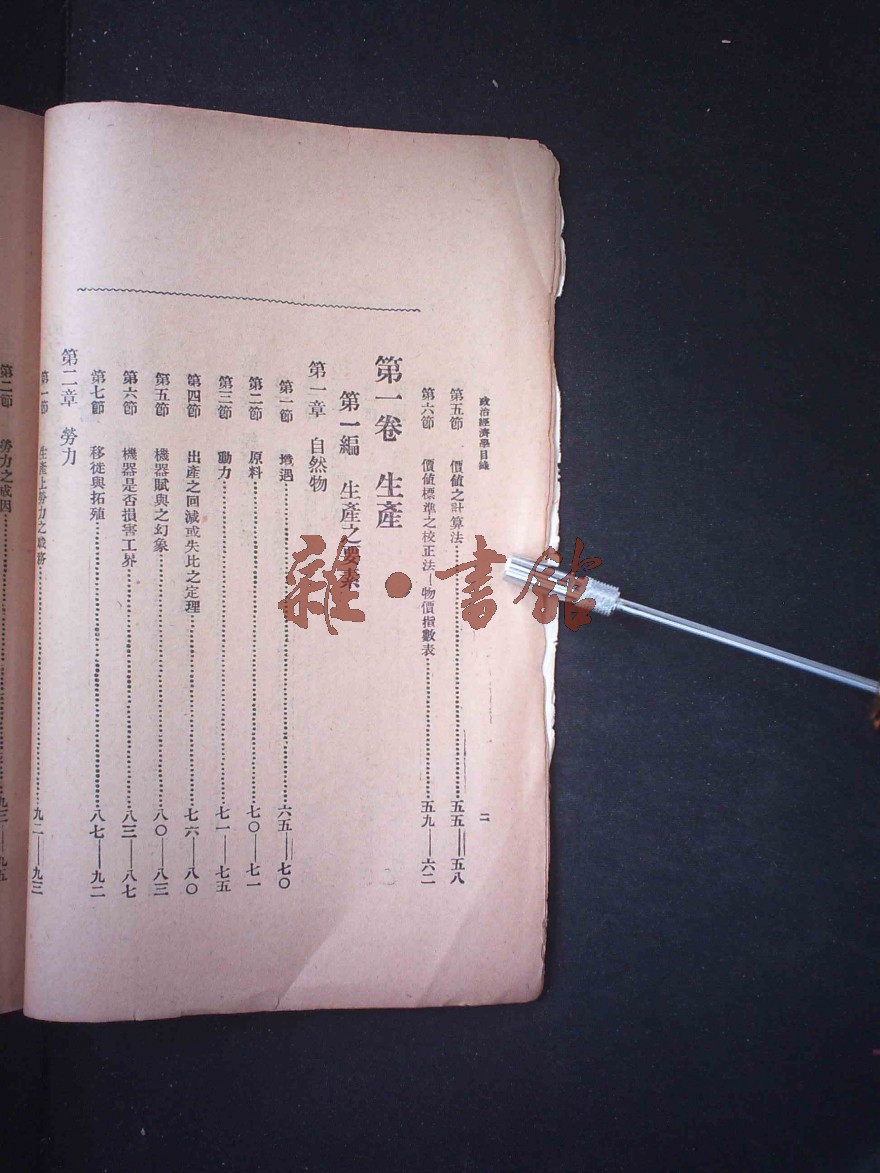 政治經濟學目錄
二
第五節 價値之計算法 五五—五八
第六節 價値標準之校正法—物價指數表 五九—六二
第一卷 生產
第一編 生產之要素
第一章 自然物
第一節 境遇 六五—七〇
第二節 原料 七〇—七一
第三節 動力 七一—七五
第四節 出產之回減或失比之定理 七六—八〇
第五節 機器賦與之幻象 八〇—八三
第六節 機器是否損害工界 八三—八七
第七節 移徙與拓殖 八七—九二
第二章 勞力
第一節 生產上勞力之職務 九二—九三
第二節 勞力之成因 九三—九五
雜·書館